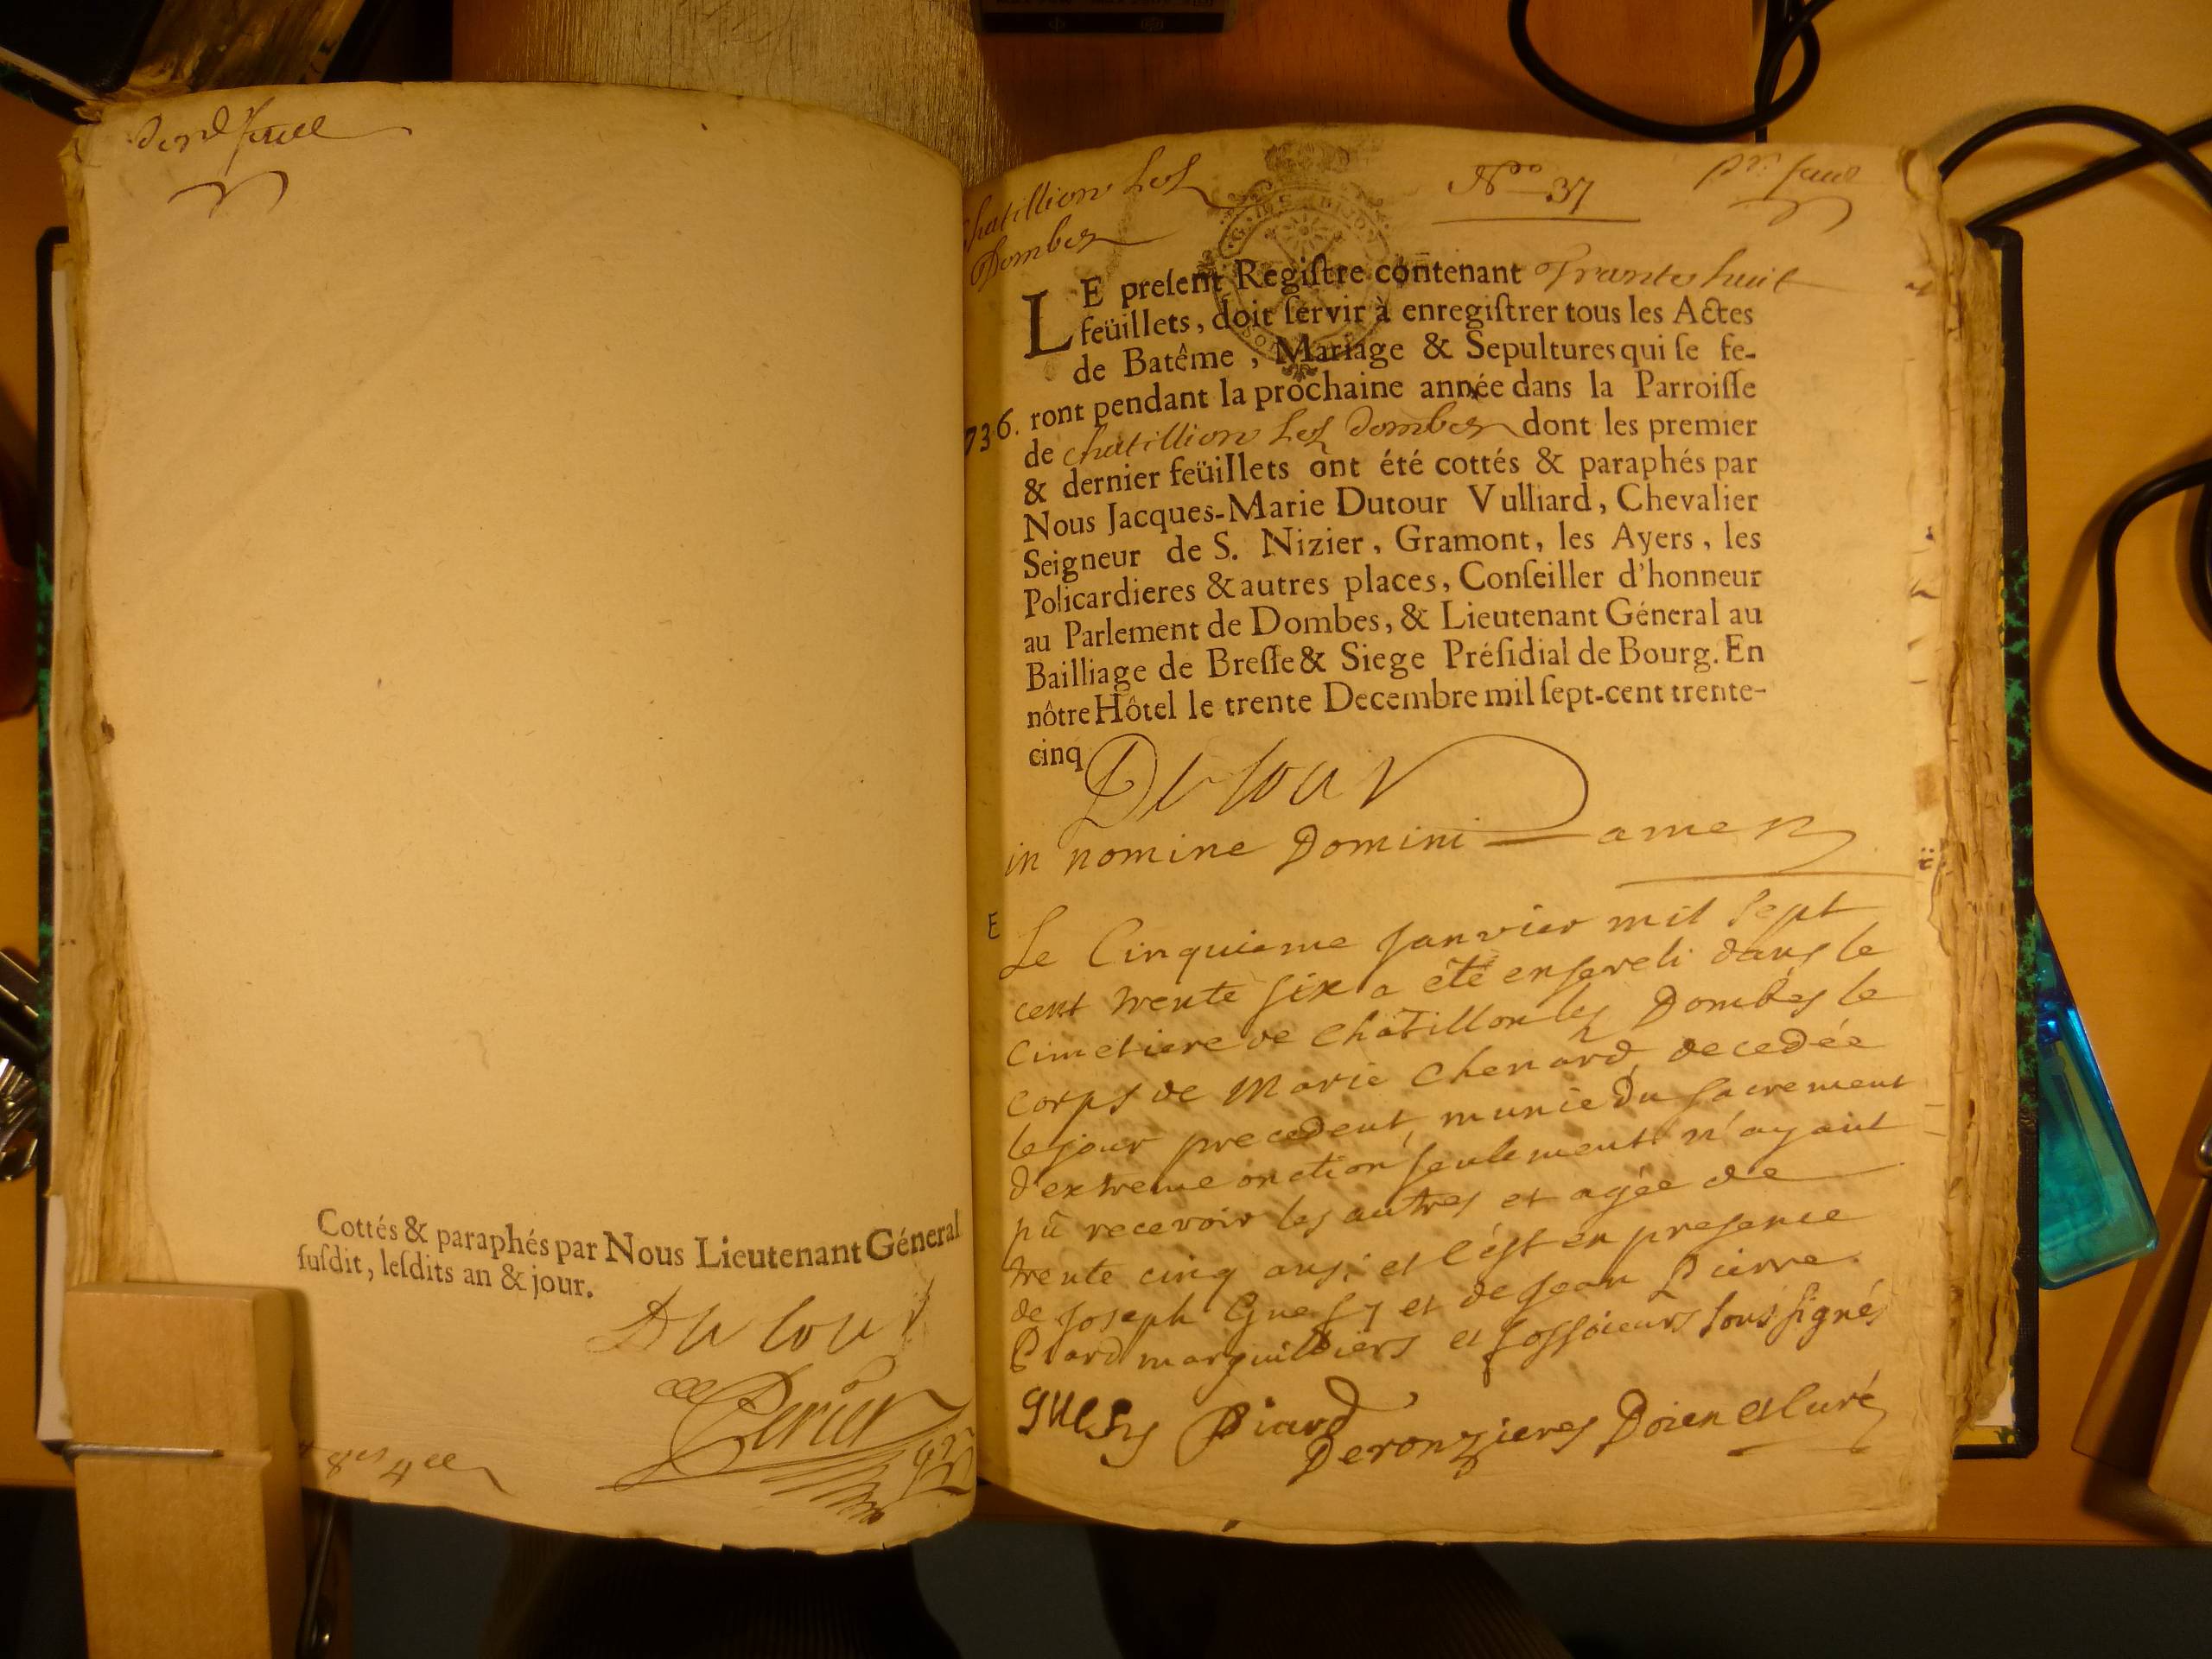 Cottés & paraphés par Nous Lieutenant Géneral
suſdit, leſdits an & jour.
Dutour
Perier
Chatillion les
Dombes
Nº 37
LE preſent Regiſtre contenant Trante huit
feüillets, doit ſervir à enregiſtrer tous les Actes
de Batême, Mariage & Sepultures qui ſe fe-
736. ront pendant la prochaine année dans la Parroiſſe
de chatillion les dombes dont les premier
& dernier feüillets ont été cottés & paraphés par
Nous Jacques-Marie Dutour Vulliard, Chevalier
Seigneur de S. Nizier, Gramont, les Ayers, les
Policardieres & autres places, Conſeiller d'honneur
au Parlement de Dombes, & Lieutenant Géneral au
Bailliage de Breſſe & Siege Préſidial de Bourg. En
nôtre Hôtel le trente Decembre mil ſept-cent trente-
cinq
Dutour
in nomine Domini amen
E
Le Cinquieme janvier mil sept
cent trente six a été enseveli dans le
cimetiere de Châtillon les Dombes le
corps de Marie Chenard, decedée
le jour precedent, munie du sacrement
d'extreme onction seulement n'ayant
pû recevoir les autres et agée de
trente cinq ans; et c'est en presence
de joseph Guesy et de jean Pierre
Piard marguilliers et fossoieurs soussignés
guesy Piard
Deronzieres Doien et Curé